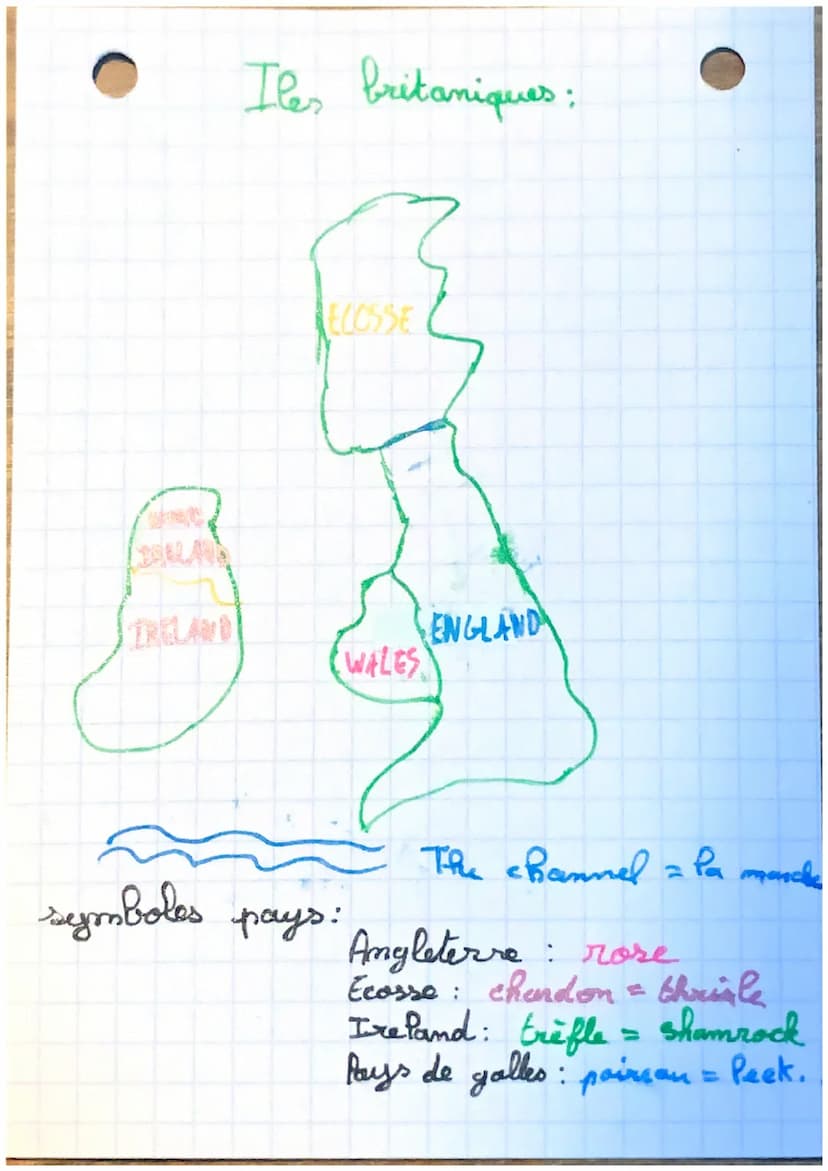 Iles britaniques :
ECOSSE
IRLAND
IRELAND
ENGLAND
WALES
The channel = la manche
symboles pays :
Angleterre : rose
Ecosse : chardon = thrisle
Ireland : trèfle = shamrock
Pays de galles : poireau = leek.